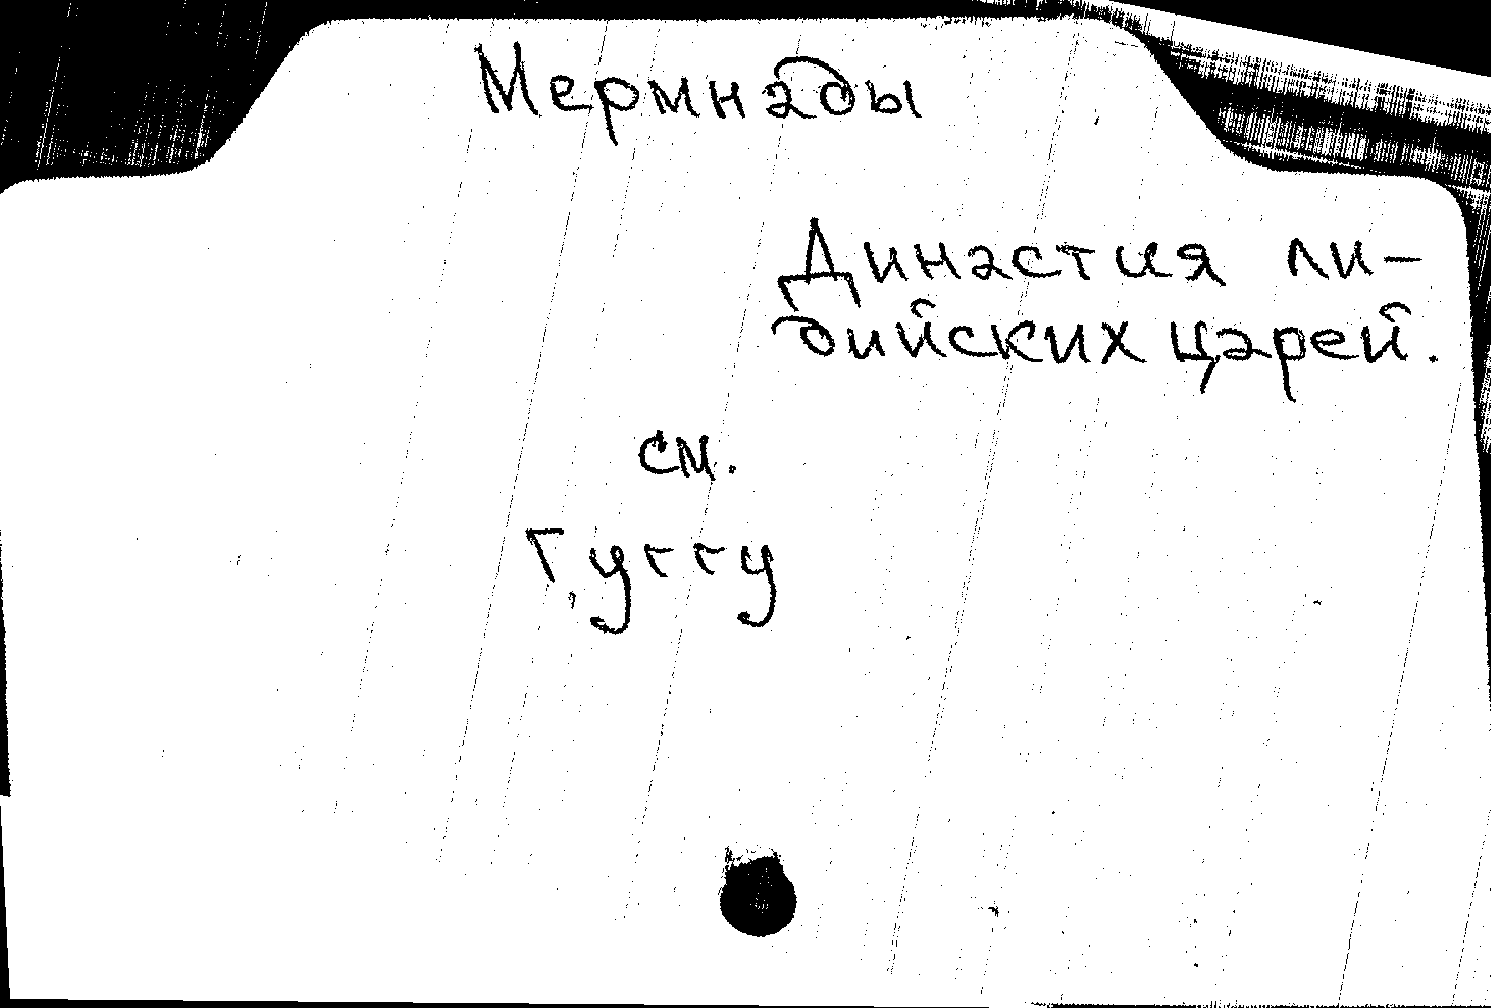 Мермнады
Династия ли-
дийских царей.
см.
Гуггу